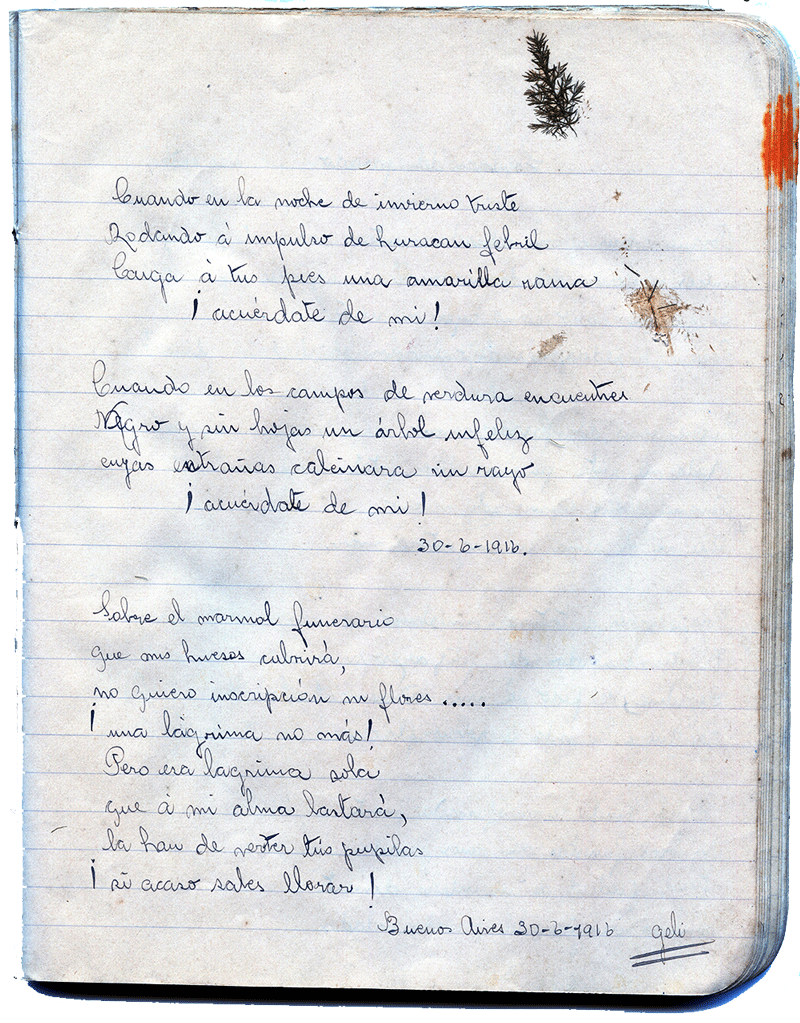 Cuando en la noche de invierno triste
Rodando á impulso de huracan febril
Caiga á tus pies una amarilla rama
¡ acuérdate de mi !
Cuando en los campos de verdura encuentres
Negro y sin hojas un árbol infeliz
cuyas entrañas calcinara un rayo
¡ acuérdate de mi !
30-6-1916.
Sobre el marmol funerario
que mis huesos cubrirá,
no quiero inscripción ni flores .....
¡ una lágrima no más!
Pero esa lagrima sola
que á mi alma bastará,
la han de verter tus pupilas
¡ si acaso sabes llorar !
Buenos Aires 30-6-1916 Geli